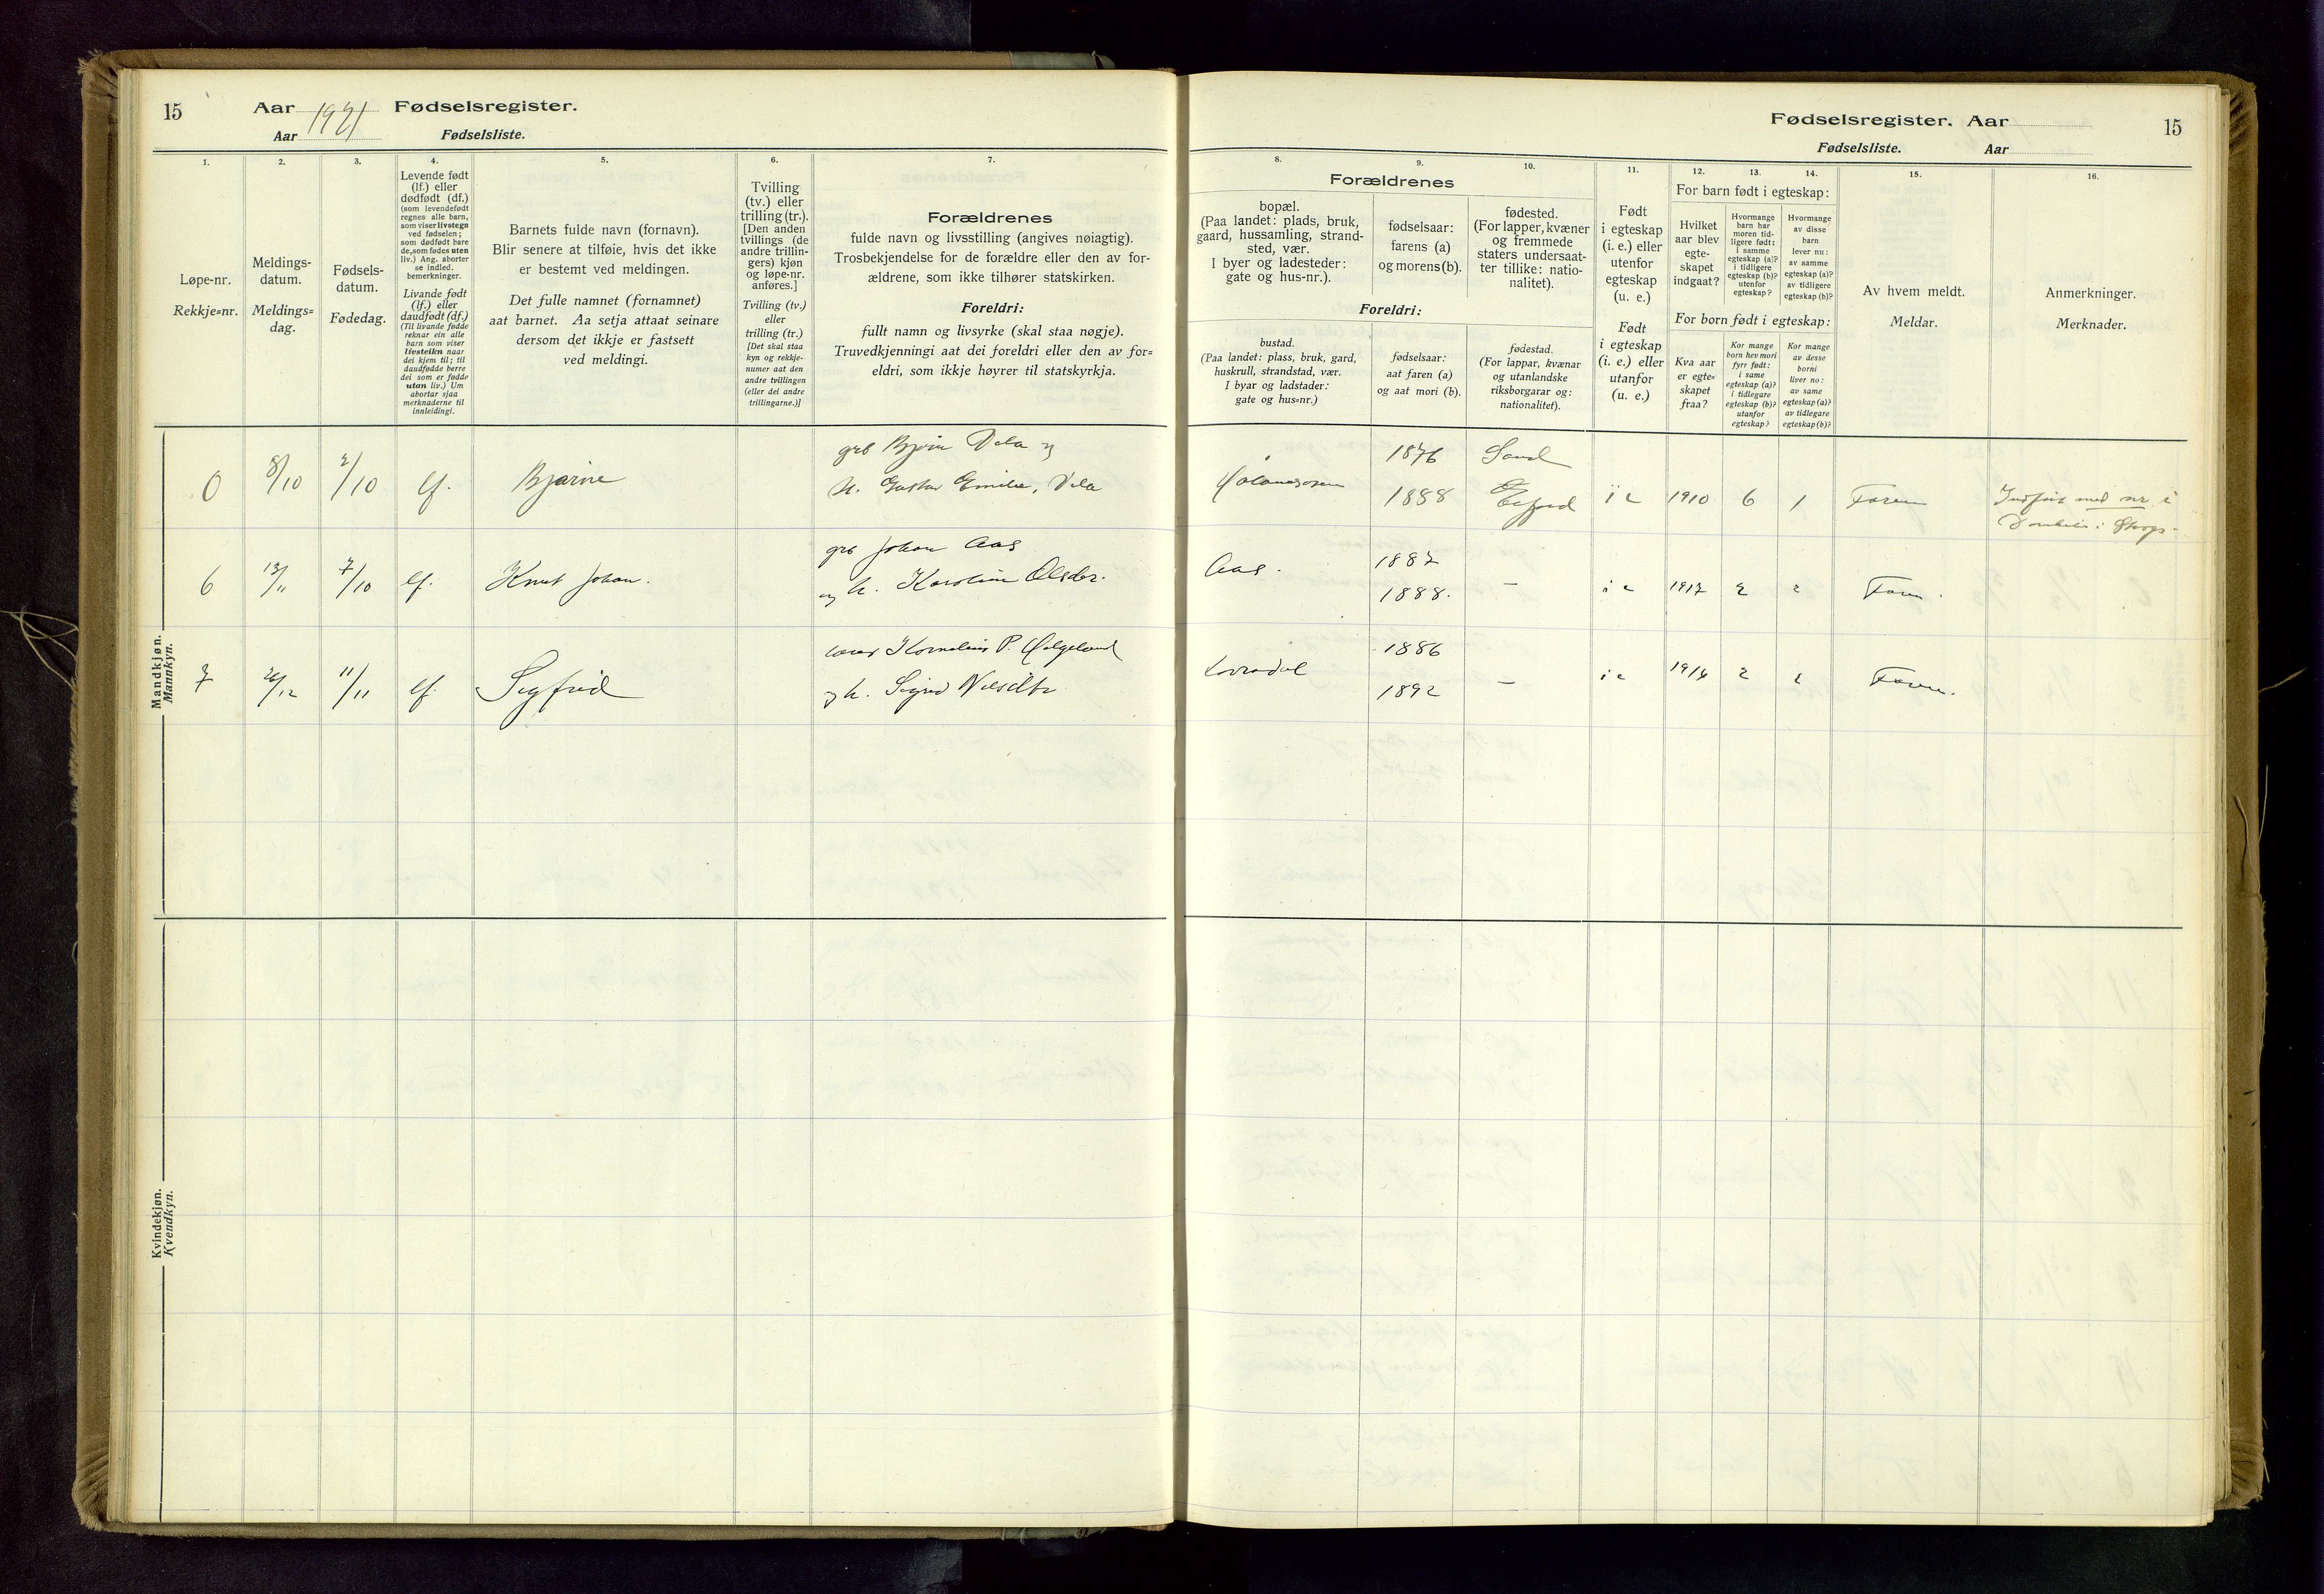 15
Aar 1921 Fødselsregister.
Aar Fødselsliste.
1.
2.
3.
4.
5.
6.
7.
Løpe-nr.
Rekkje=nr.
Meldings-
datum.
Meldings=
dag.
Fødsels-
datum.
Fødedag.
Levende født
(lf.) eller
dødfødt (df.)
(som levendefødt
regnes alle barn,
som viser livstegn
ved fødselen;
som dødfødt bare
de, som fødes uten
liv.) Ang. aborter
se indled.
bemerkninger.
Livande født
(lf.) eller
daudfødt (df.)
(Til livande fødde
reknar ein alle
barn som viser
livsteikn naar
dei kjem til; til
daudfødde berre
dei som er fødde
utan liv.) Um
abortar sjaa
merknaderne til
innleidingi.
Barnets fulde navn (fornavn).
Blir senere at tilføie, hvis det ikke
er bestemt ved meldingen.
Det fulle namnet (fornamnet)
aat barnet. Aa setja attaat seinare
dersom det ikkje er fastsett
ved meldingi.
Tvilling
(tv.) eller
trilling (tr.).
[Den anden
tvillings (de
andre trillin-
gers) kjøn
og løpe-nr.
anføres.]
Tvilling (tv.)
eller
trilling (tr.)
[Det skal staa
kyn og rekkje-
numer aat den
andre tvillingen
(eller dei andre
trillingarne.)]
Forældrenes
fulde navn og livsstilling (angives nøiagtig).
Trosbekjendelse for de forældre eller den av for-
ældrene, som ikke tilhører statskirken.
Foreldri:
fullt namn og livsyrke (skal staa nøgje).
Truvedkjenningi aat dei foreldri eller den av for=
eldri, som ikkje høyrer til statskyrkja.
Mandkjøn.
Mannkyn.
0 8/10 2/10 lf. Bjarne
grb Bjørn Vela og
h. Gustav Emilie, Vela
6 7/10 lf. Knut Johan.
grb Johan Aas
og h. Karoline Olsdtr.
7 11/11 lf. Sigfrid
Kornelius P. Helgeland
og h. Sigrid Nilsdtr
Kvindekjøn.
Kvendkyn.
Fødselsregister. Aar
Fødselsliste. Aar
15
8.
9.
10.
11.
12.
13.
14.
15.
16.
Forældrenes
bopæl.
(Paa landet: plads, bruk,
gaard, hussamling, strand-
sted, vær.
I byer og ladesteder:
gate og hus-nr.).
fødselsaar:
farens (a)
og morens (b).
fødested.
(For lapper, kvæner
og fremmede
staters undersaat-
ter tillike: natio-
nalitet).
Foreldri:
bustad.
(Paa landet: plass, bruk, gard,
huskrull, strandstad, vær.
I byar og ladstader:
gate og hus=nr.)
fødselsaar:
aat faren (a)
og aat mori (b).
fødestad.
(For lappar, kvænar
og utanlandske
riksborgarar og:
nationalitet).
Født
i egteskap
(i. e.) eller
utenfor
egteskap
(u. e.)
Født
i egteskap
(i. e.) eller
utanfor
(u. e.)
For barn født i egteskap:
Hvilket
aar blev
egte-
skapet
indgaat?
Hvormange
barn har
moren tid-
ligere født:
i samme
egteskap (a)?
i tidligere
egteskap (b)?
utenfor
egteskap?
Hvormange
av disse
barn
lever nu:
av samme
egteskap (a)?
av tidligere
egteskap (b)?
For born født i egteskap:
Kva aar
er egte=
skapet
fraa?
Kor mange
born hev mori
fyrr født:
i same
egteskap (a)?
i tidlegare
egteskap (b)?
utanfor
egteskap?
Kor mange
av desse
borni
liver no:
av same
egteskap (a)?
av tidlegare
egteskap (b)?
Av hvem meldt.
Meldar.
Anmerkninger.
Merknader.
1876 Sand
1888 i e 1910 6 1 Faren
Indført med nr. i
Aas. 1887
1888. — i e 1917 2 2 Faren.
1886
1892 — i e 1914 2 2 Faren.